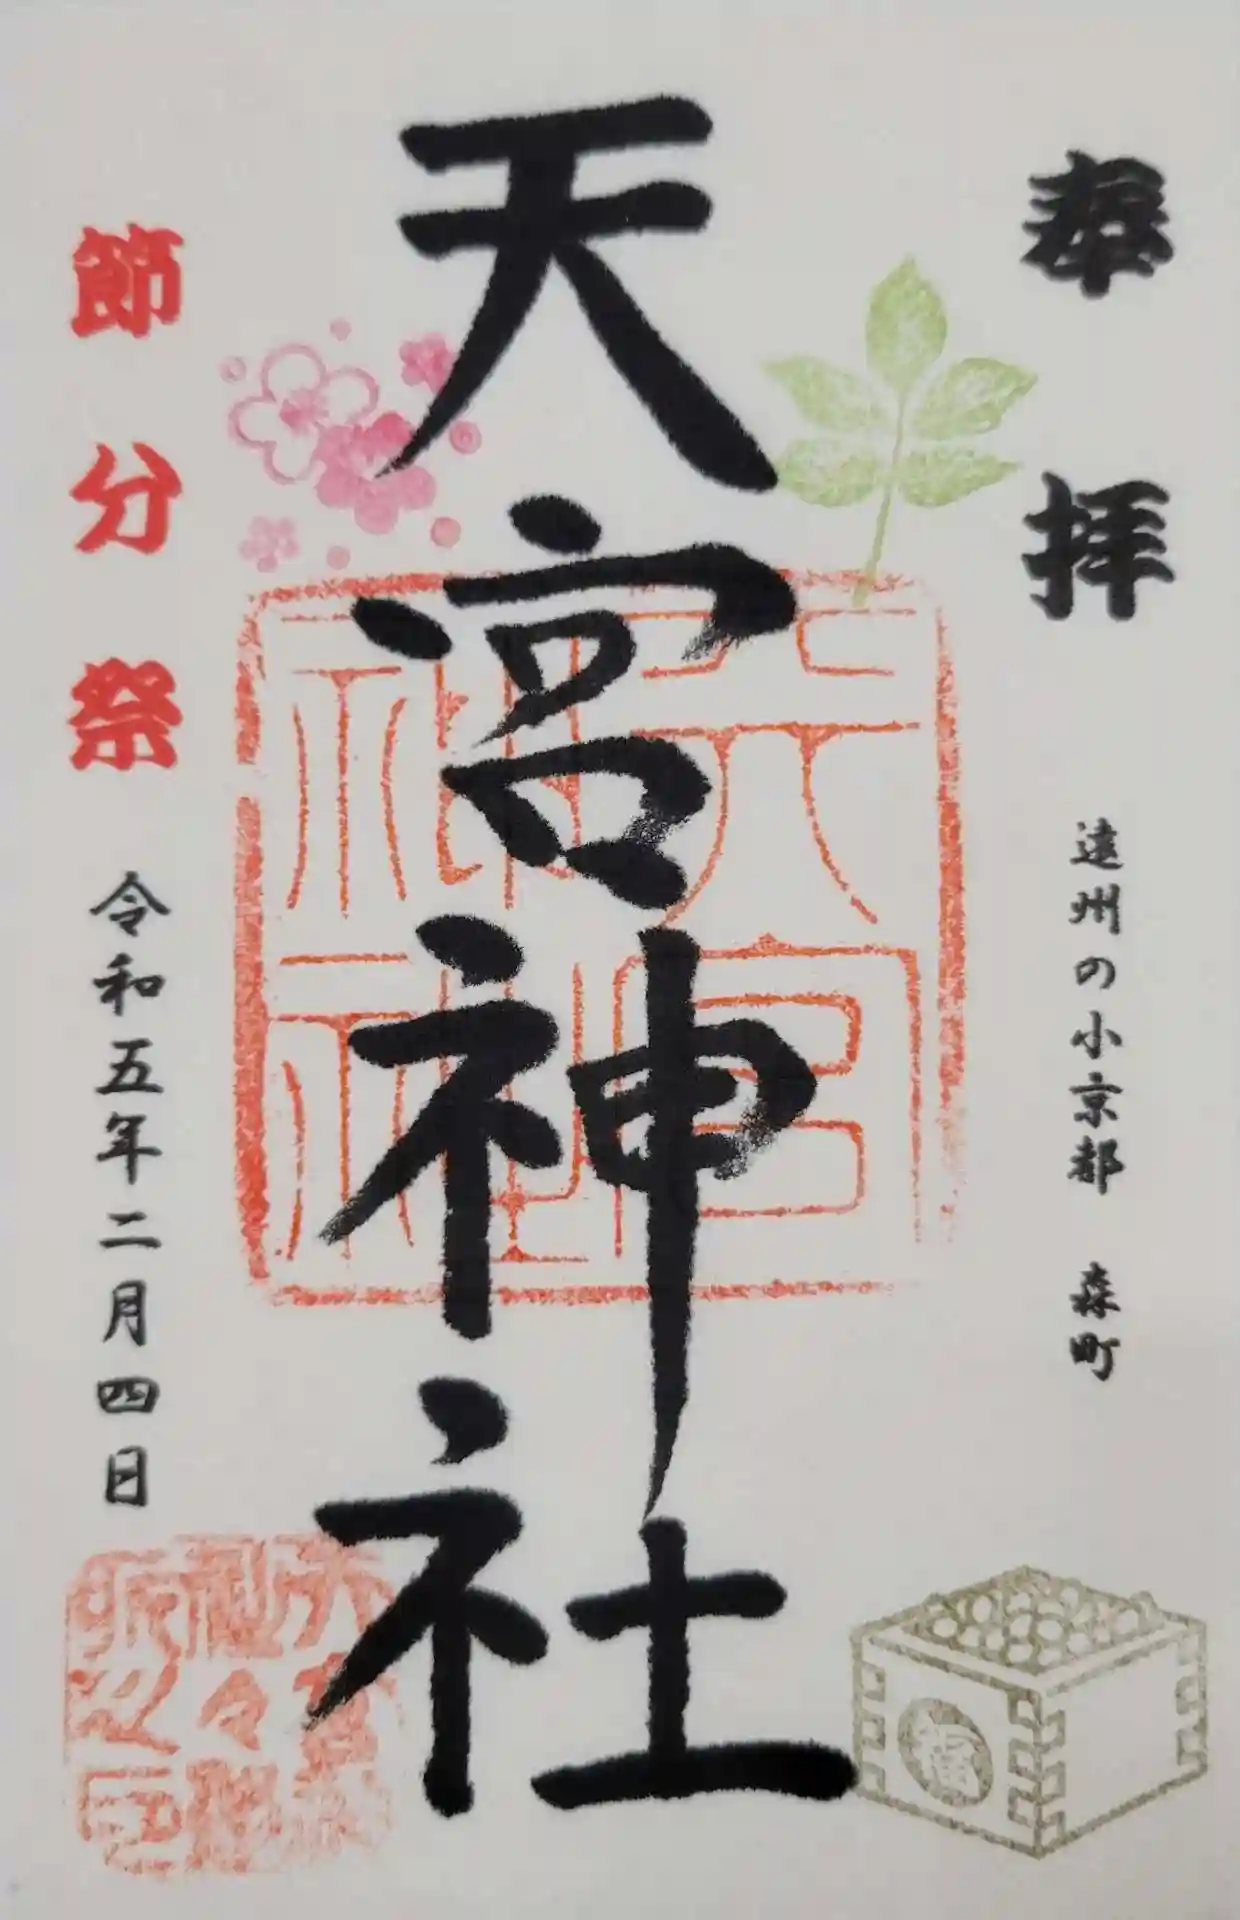 奉拝
遠州の小京都 森町
天宮神社
節分祭
令和五年二月四日
天宮神社